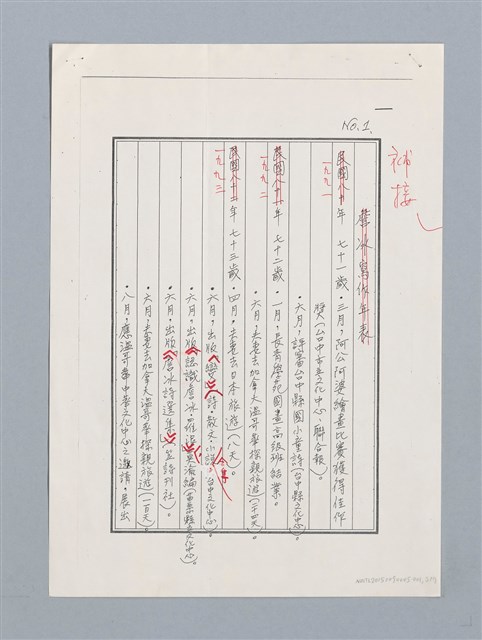 No.1.
一
補接
詹冰寫作年表
民國八十年 七十一歲・三月,阿公阿婆繪畫比賽獲得佳作
一九九一
獎(台中市立文化中心、聯合報)。
・六月,評審台中縣國小童詩(台中縣文化中心)。
民國八十一年 七十二歲 一月,長青學苑國畫高級班結業。
一九九二
・六月,夫妻去加拿大溫哥華探親旅遊(二十四天)。
民國八十二年 七十三歲・四月,夫妻去日本旅遊(八天)。
一九九三
・六月,出版《變》(詩・散文・小說 合集 台中市文化中心)。
・六月,出版《認識詹冰・羅浪》莫渝編(苗栗縣文化中心)。
・六月,出版《詹冰詩選集》(笠詩刊社)。
・六月,夫妻去加拿大溫哥華探親旅遊(一百天)。
・八月,應溫哥華中華文化中心之邀請,展出